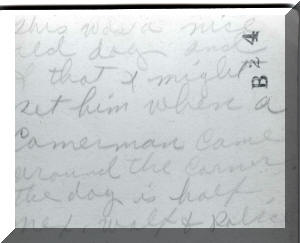 this was a nice
red dog and
I that I might
get him when a
Camerman Came
around the Corner
the dog is half
wolf &
B 24